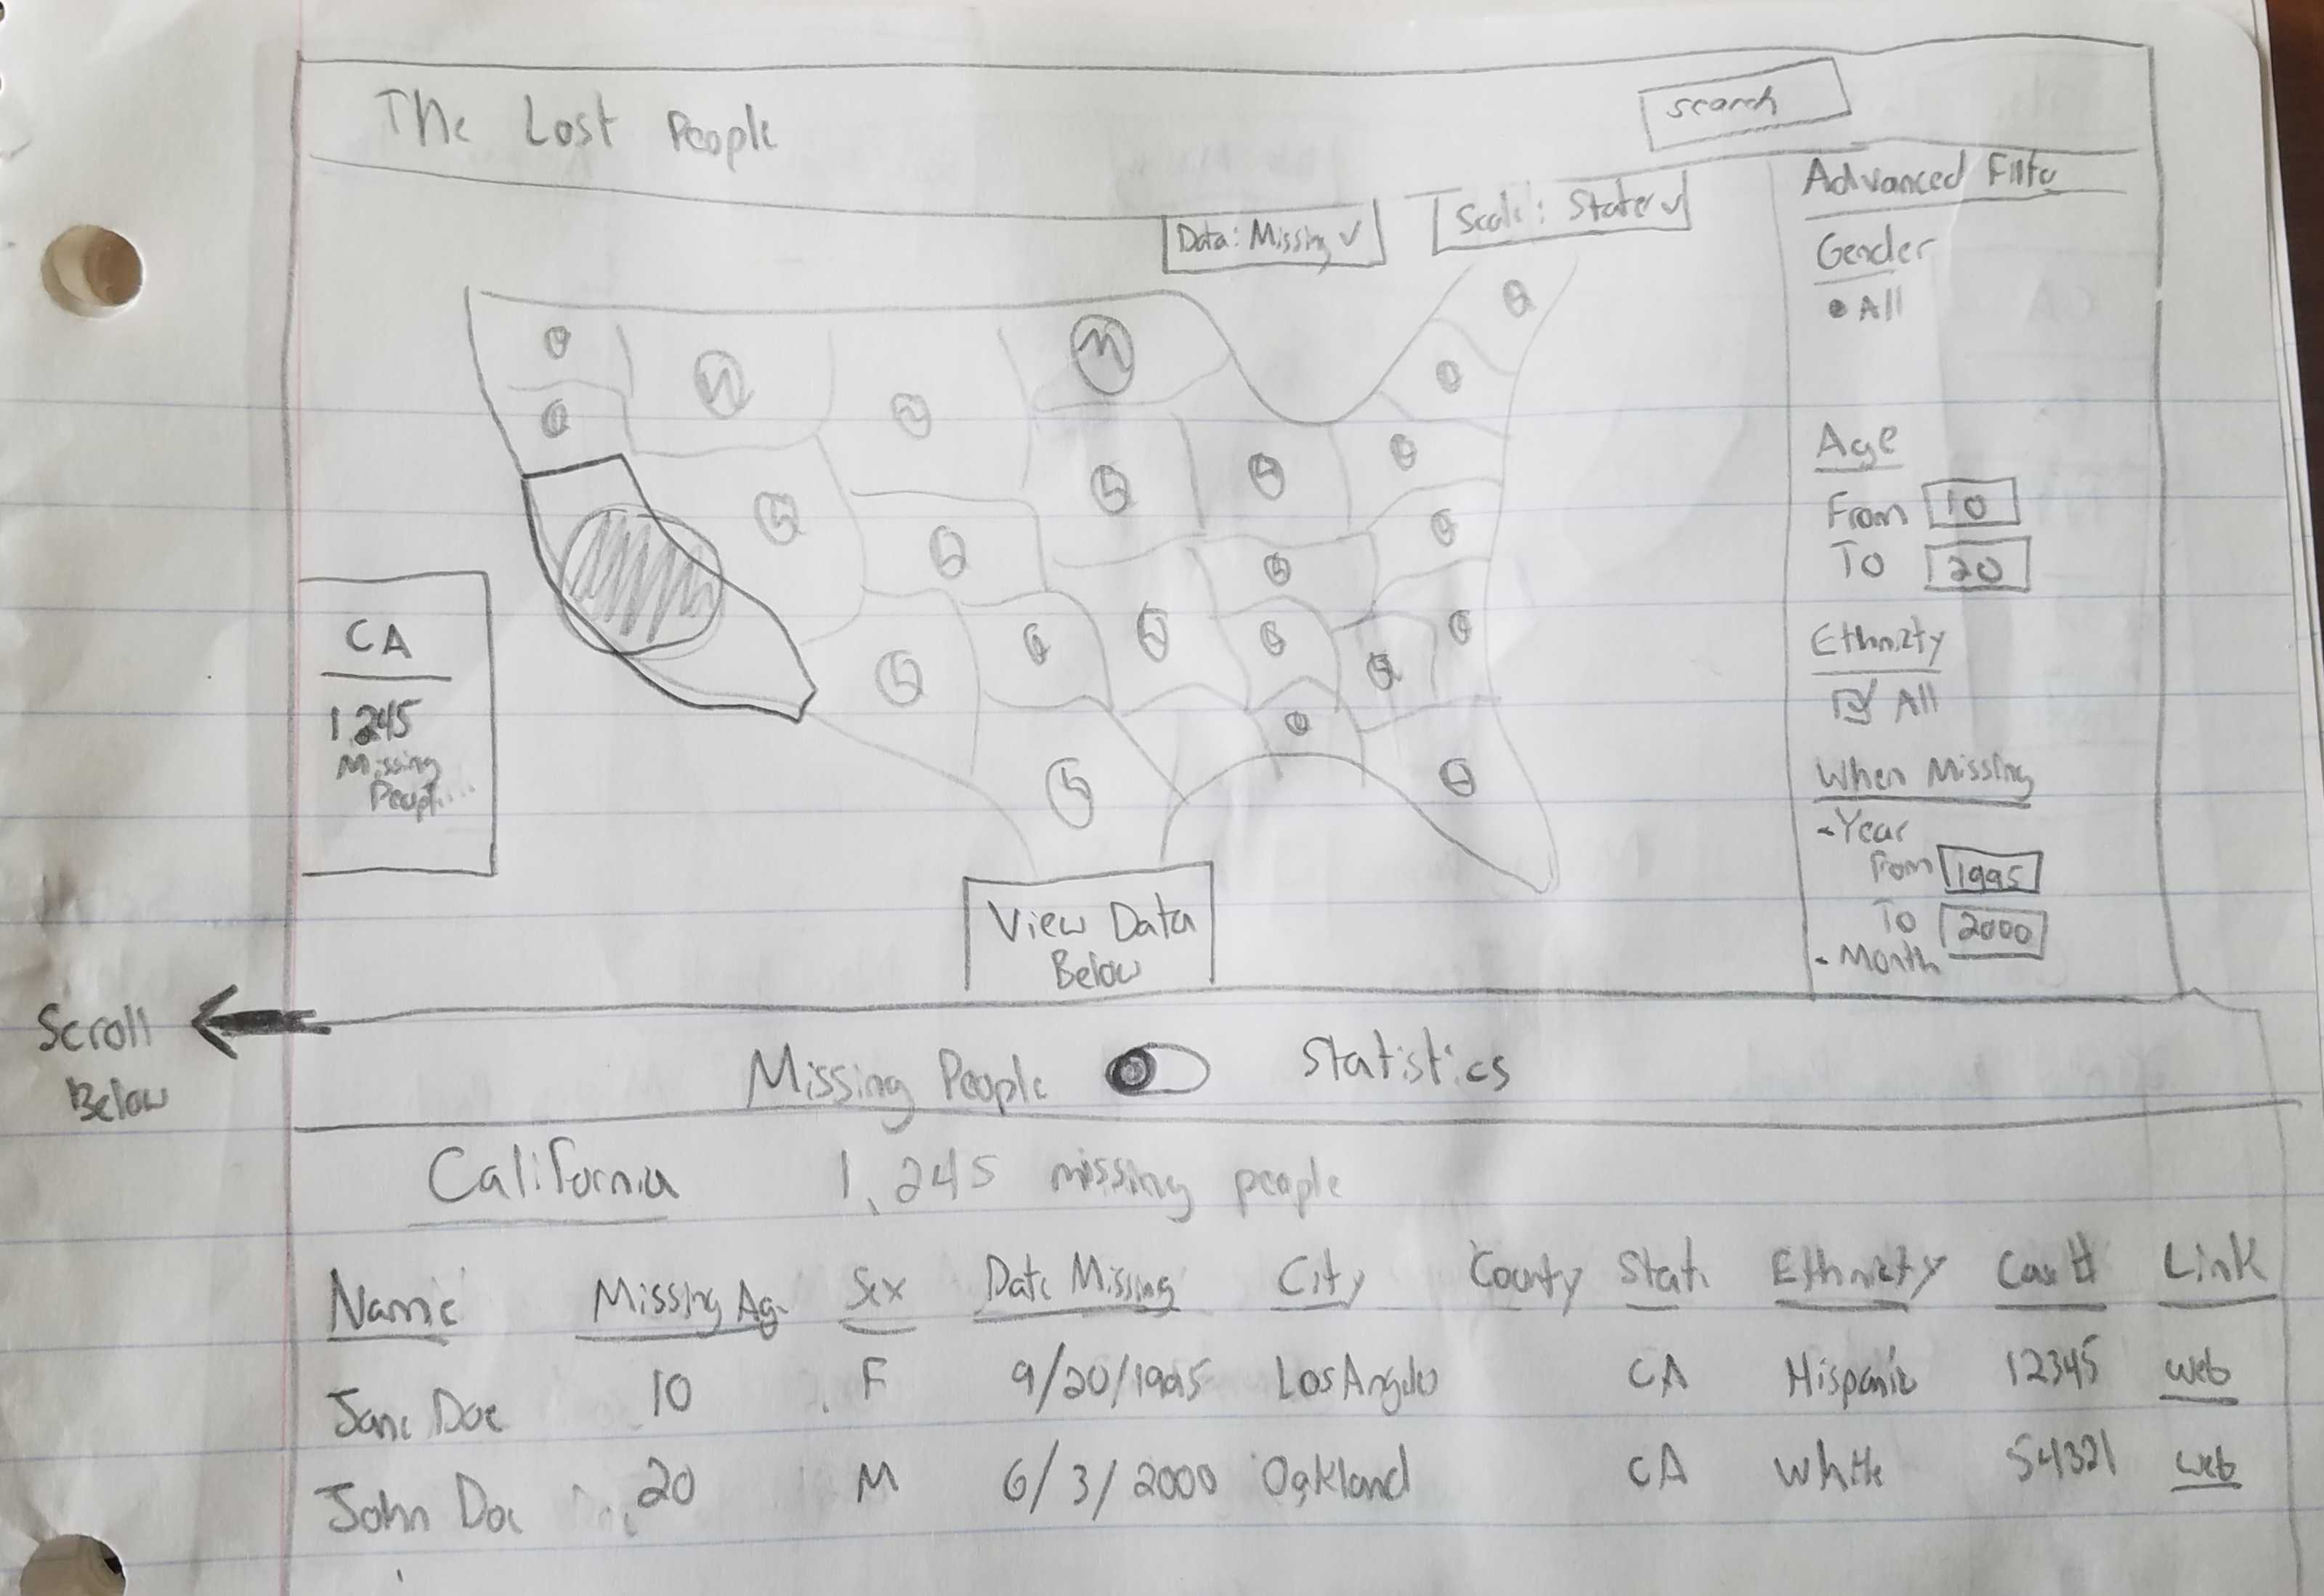 The Lost People
search
Data: Missing
Scale: State
Advanced Filter
Gender
All
Age
From 10
To 20
Ethnicty
All
When Missing
- Year
From 1995
To 2000
- Month
CA
1,245
Missing
Peopl....
View Data
Below
Scroll
Below
Missing People
Statistics
California 1,245 missing people
Name Missing Age Sex Date Missing City County State Ethnicty Case # Link
Jane Doe 10 F 9/20/1995 Los Angeles CA Hispanic 12345 web
John Doe 20 M 6/3/2000 Oakland CA White 54321 web